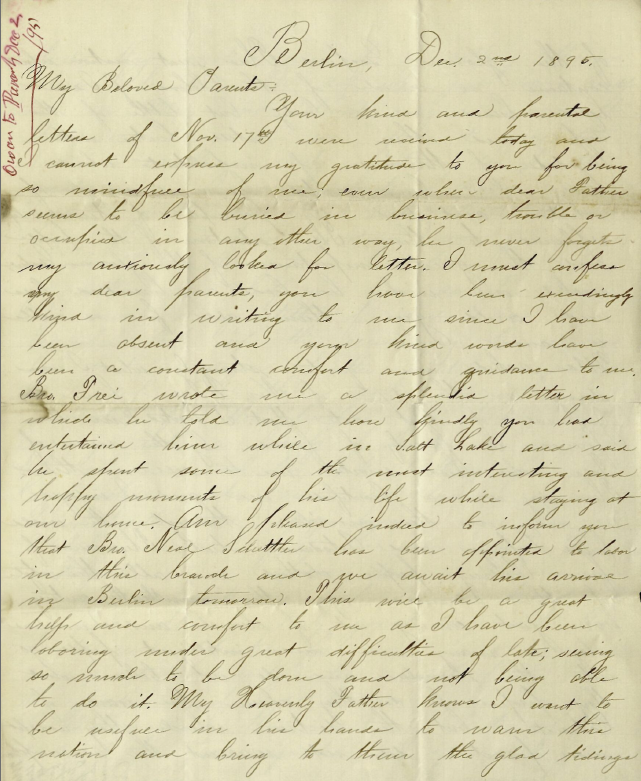 Owen to Parents Dec 2, /95
Berlin, Dec. 2nd 1895.
My Beloved Parents:
Your kind and parental
letters of Nov. 17th were received today and
I cannot express my gratitude to you for being
so mindful of me, even when dear Father
seems to be buried in business, trouble or
occupied in any other way, he never forgets
my anxiously looked for letter. I must confess
my dear parents, you have been exceedingly
kind in writing to me since I have
been absent and your kind words have
been a constant comfort and guidance to me.
Bro. Frei wrote me a splendid letter in
which he told me how kindly you had
entertained him while in Salt Lake and said
he spent some of the most interesting and
happy moments of his life while staying at
our home. Am pleased indeed to inform you
that Bro. Neal has been appointed to labor
in this branch and we await his arrival
in Berlin tomorrow. This will be a great
help and comfort to me as I have been
laboring under great difficulties of late; seeing
so much to be done and not being able
to do it. My Heavenly Father knows I want to
be useful in his hands to warn this
nation and bring to them the glad tidings